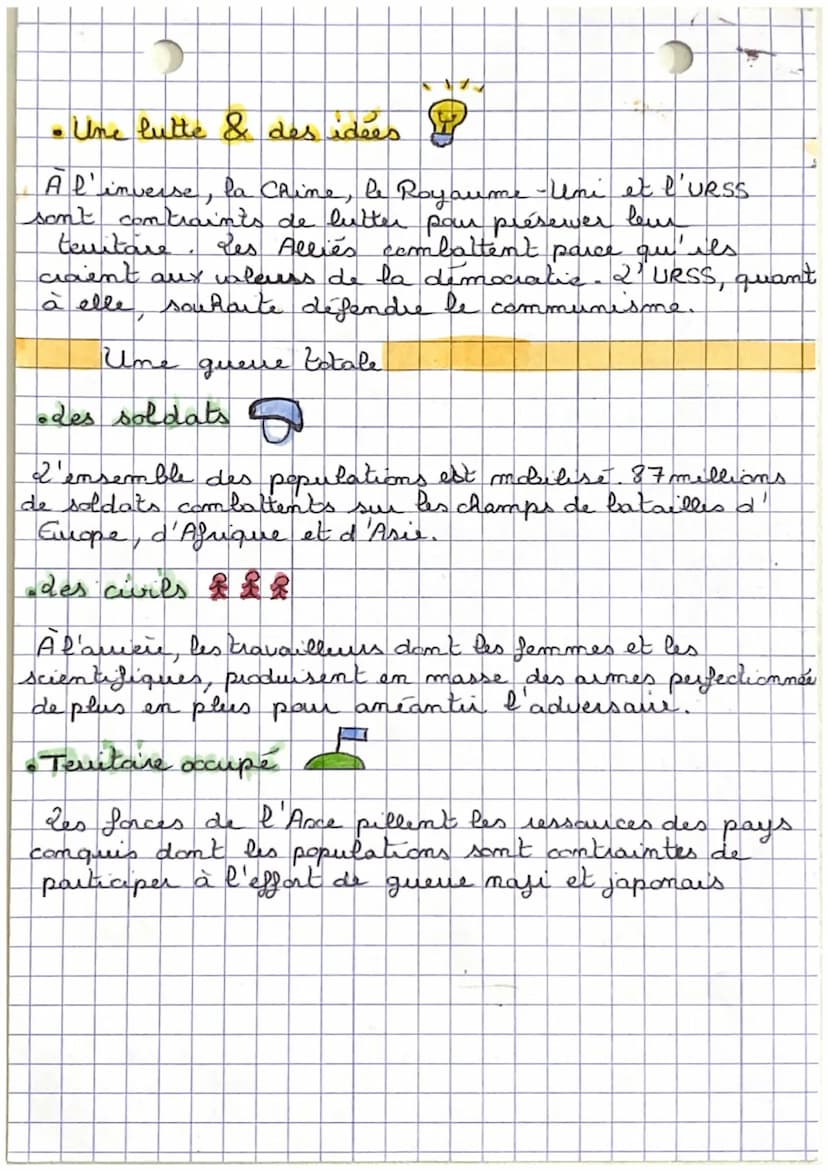 • Une lutte & des idées
À l'inverse, la Chine, le Royaume-Uni et l'URSS
sont contraints de lutter pour préserver leur
territoire. Les Alliés combattent parce qu'ils
croient aux valeurs de la démocratie. L'URSS, quant
à elle, souhaite défendre le communisme.
Une guerre totale
• des soldats
L'ensemble des populations est mobilisé. 87 millions
de soldats combattents sur les champs de batailles d'
Europe, d'Afrique et d'Asie.
• des civils
À l'arrière, les travailleurs dont les femmes et les
scientifiques, produisent en masse des armes perfectionnée
de plus en plus pour anéantir l'adversaire.
• Territoire occupé
Les forces de l'Axe pillent les ressources des pays
conquis dont les populations sont contraintes de
participer à l'effort de guerre nazi et japonais